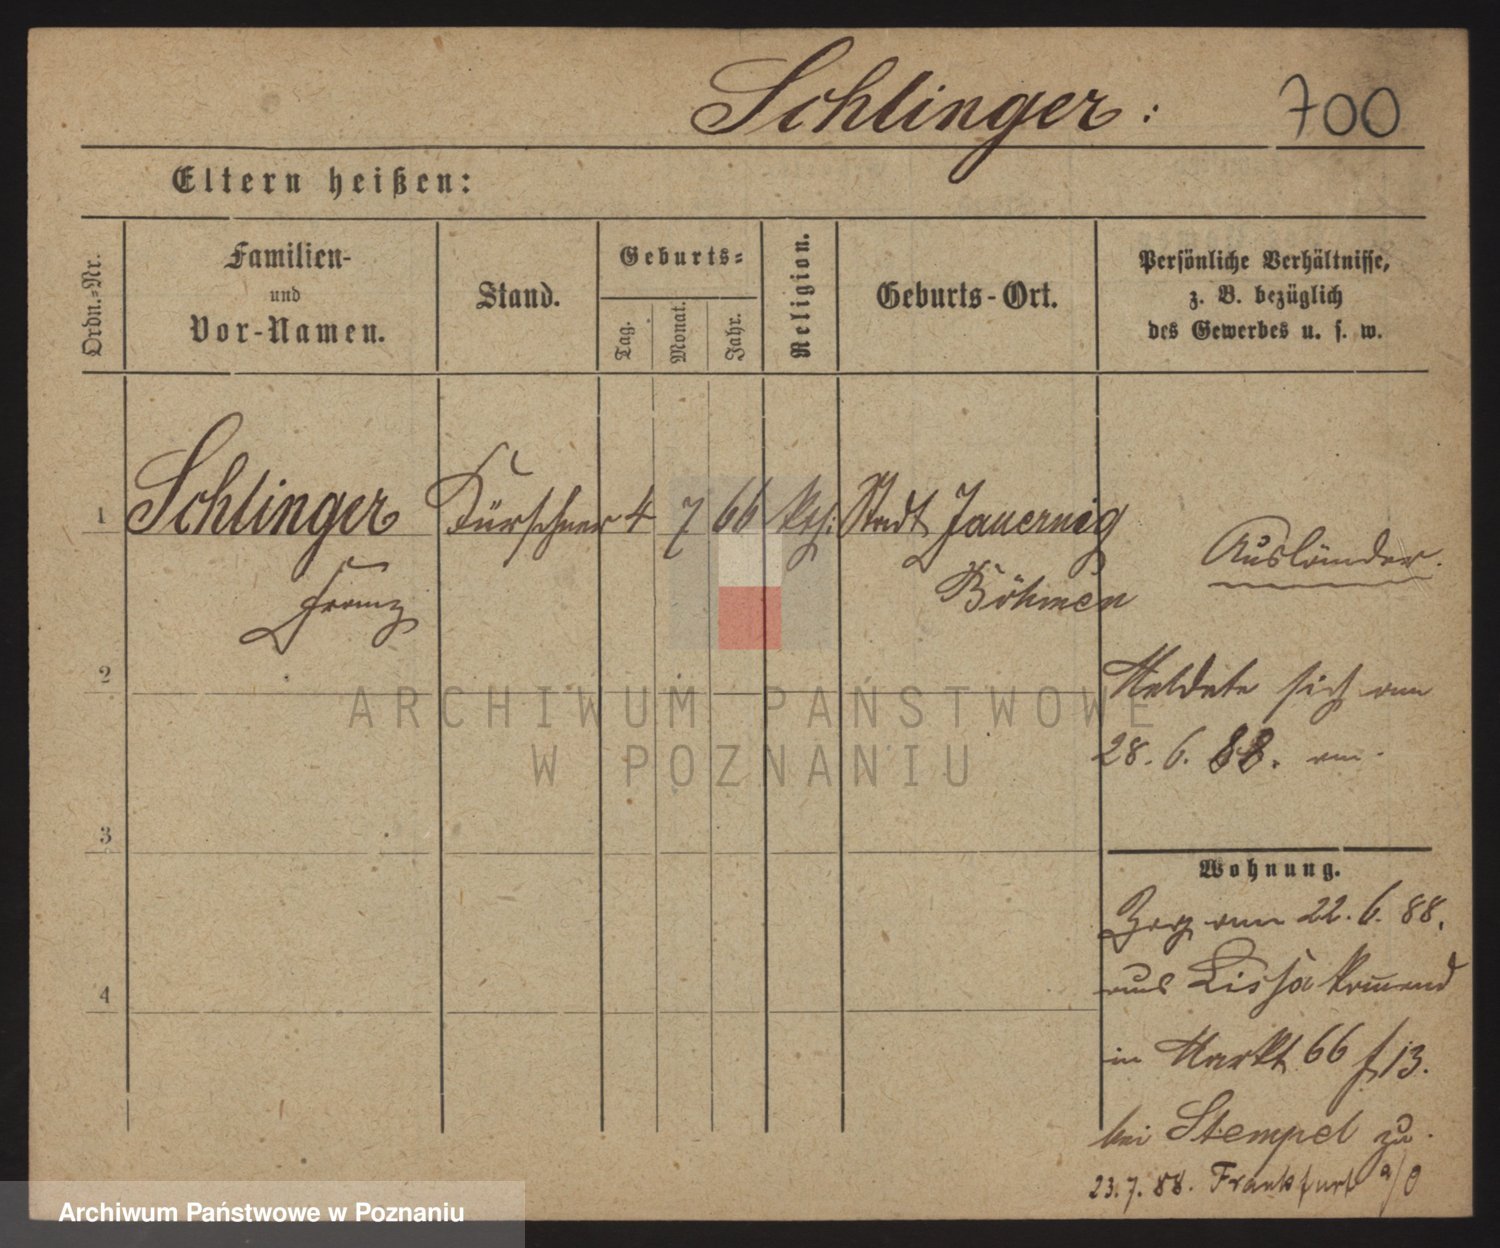 Schlinger:
700
Eltern heißen:
Ordn.-Nr.
Familien-
und
Vor-Namen.
Stand.
Geburts-
Tag.
Monat.
Jahr.
Religion.
Geburts-Ort.
Persönliche Verhältnisse,
z. B. bezüglich
des Gewerbes u. s. w.
1 Schlinger Kürschner 4 7 66 kth: Stadt Jauernig
Franz
Böhmen
Ausländer.
2
Meldete sich am
28. 6. 88. an.
3
Wohnung.
Zog am 22. 6. 88.
aus Lissa kommend
4
in Markt 66 f 13.
bei Stempel zu.
23. 7. 88. Frankfurt a/O
ARCHIWUM PAŃSTWOWE
W POZNANIU
Archiwum Państwowe w Poznaniu